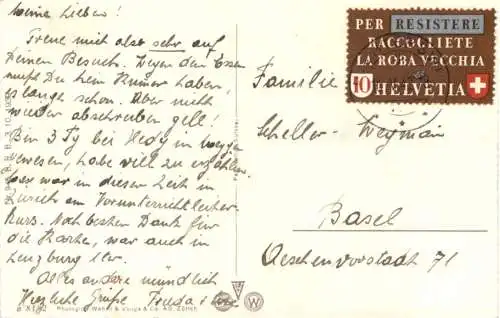 Meine Lieben!
Freue mich also sehr auf
Deinen Besuch. Wegen dem Essen
musst Du kein Kummer haben,
es längt schon. Aber nicht
wieder abschreiben gell!
Bin 3 Tg bei Hedy in
gewesen, habe viel zu erzählen.
war in dieser Zeit in
Zürich am Vorunterricht leiter-
Kurs. Noch besten Dank für
die Karte, war auch in
Lenzburg
Alles andere mündlich
Herzliche Grüsse Truda
PER RESISTERE
RACCOGLIETE
LA ROBA VECCHIA
10 HELVETIA
Familie
Scheller-Weymän
Basel
Aeschenvorstadt 71